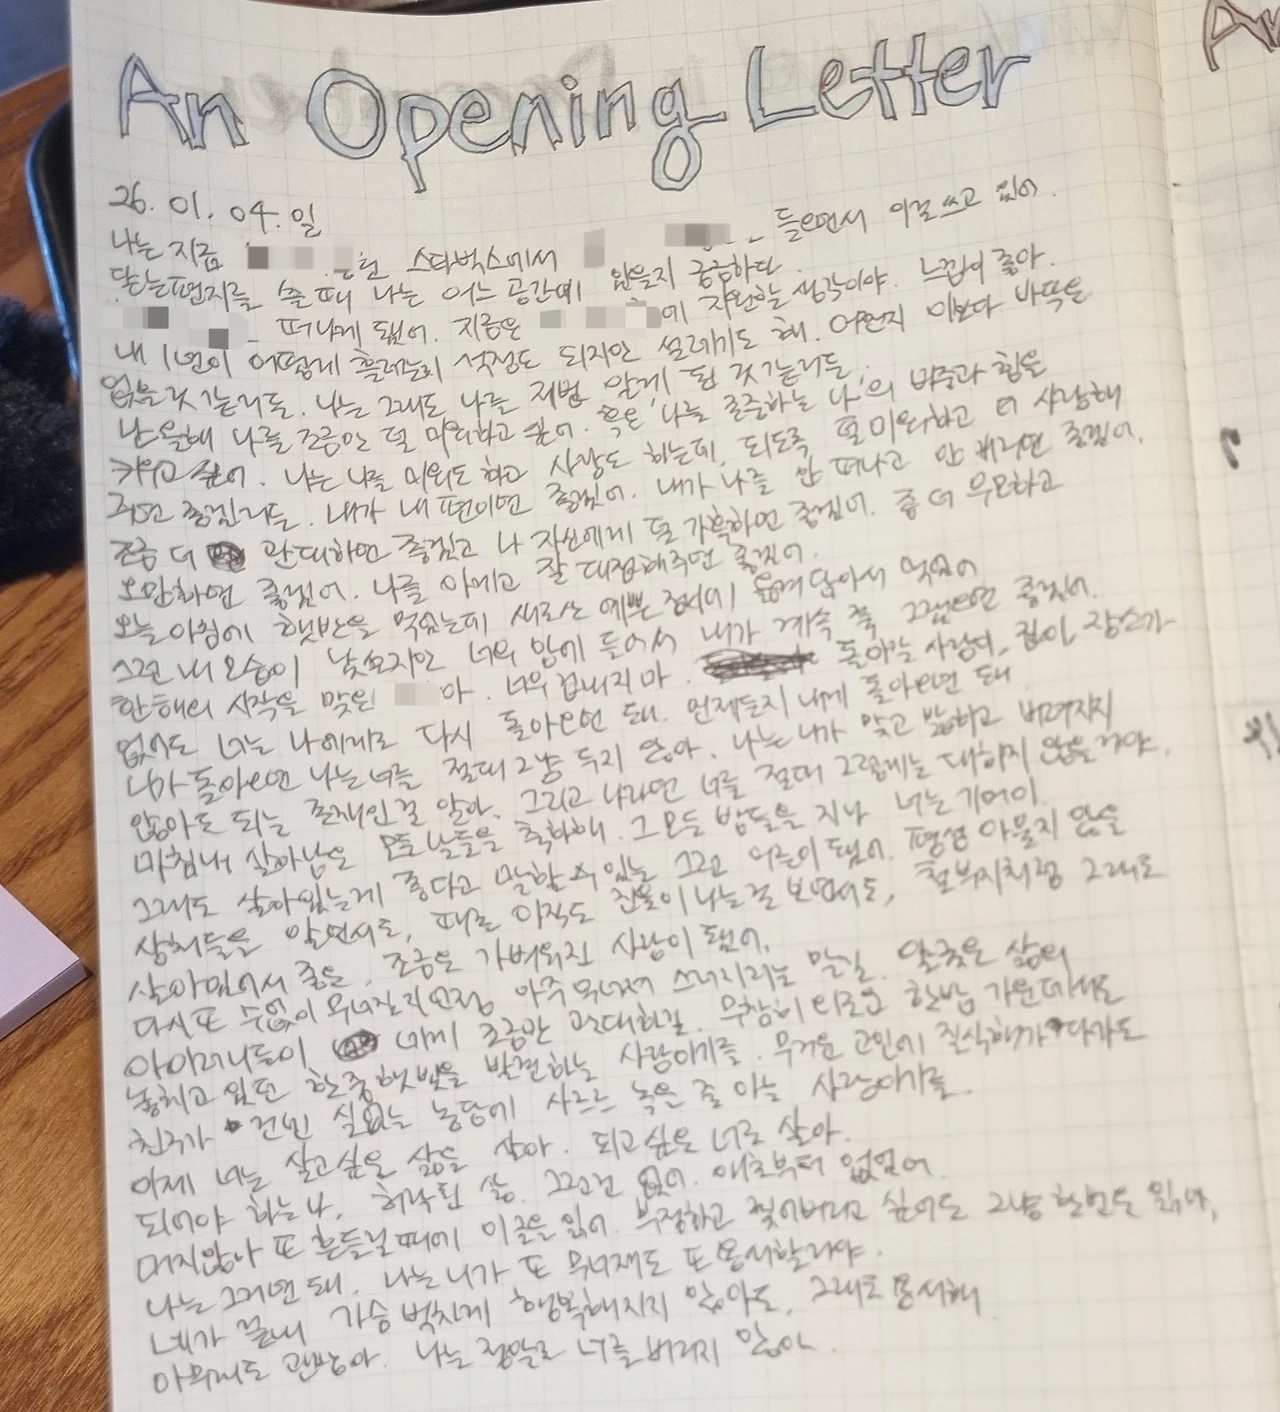 An Opening Letter
26. 01. 04. 일
나는 지금 스타벅스에서 들으면서 이걸 쓰고 있어.
닫는편지를 쓸 때 나는 어느 공간에 있을지 궁금하다.
떠나게 됐어. 지금은 에 지원할 생각이야. 느낌이 좋아.
내 1년이 어떻게 흘러갈지 걱정도 되지만 설레기도 해. 어쩐지 이보다 바닥은
없을것 같거든. 나는 그래도 나를 제법 알게 된 것 같거든.
난 올해 나를 조금만 덜 미워하고 싶어. 혹은 '나를 존중하는 나'의 비중과 힘을
키우고 싶어. 나는 나를 미워도 하고 사랑도 하는데, 되도록 덜 미워하고 더 사랑해
주면 좋겠거든. 내가 내 편이면 좋겠어. 내가 나를 안 떠나고 안 버리면 좋겠어.
조금 더 관대하면 좋겠고 나 자신에게 덜 가혹하면 좋겠어. 좀 더 우아하고
오만하면 좋겠어. 나를 아끼고 잘 대접해주면 좋겠어.
오늘 아침에 햇반을 먹었는데 새로산 예쁜 접시에 옮겨 담아서 먹었어
그런 내 모습이 낯설지만 너의 맘에 들어서 내가 계속 쭉 그랬으면 좋겠어.
한해의 시작을 맞은 아. 너의 겁내지 마. 돌아갈 사람이, 집이, 장소가
없어도 너는 나에게로 다시 돌아오면 돼. 언제든지 내게 돌아오면 돼
너가 돌아오면 나는 너를 절대 그냥 두지 않아. 나는 내가 맞고 밟히고 버려지지
않아도 되는 존재인걸 알아. 그리고 나라면 너를 절대 그렇게는 대하지 않을거야.
마침내 살아남은 모든 날들을 축하해. 그 모든 밤들을 지나 너는 기어이
그래도 살아있는게 좋다고 말할 수 있는 그런 어른이 됐어. 평생 아물지 않을
상처들을 알면서도, 때로 아직도 진물이 나는걸 보면서도, 철부지처럼 그래도
살아있어서 좋은, 조금은 가벼워진 사람이 됐어.
다시 또 수없이 무너질지언정 아주 무너져 쓰러지지는 말길. 얄궂은 삶의
아이러니들이 네게 조금만 관대하길. 무참히 외로운 한밤 가운데서도
놓치고 있던 한줌 햇빛을 발견하는 사람이기를. 무거운 고민에 질식해가다가도
친구가 건넨 실없는 농담에 사르르 녹을 줄 아는 사람이기를.
이제 너는 살고싶은 삶을 살아. 되고싶은 너로 살아.
되어야 하는 나, 허락된 삶. 그런건 없어. 애초부터 없었어.
머지않아 또 흔들릴 때에 이 글을 읽어. 부정하고 찢어버리고 싶어도 그냥 한번은 읽어,
나는 그거면 돼. 나는 너가 또 무너져도 또 용서할거야.
네가 끝내 가슴 벅차게 행복해지지 않아도, 그래도 용서해
아무래도 괜찮아. 나는 정말로 너를 버리지 않아.